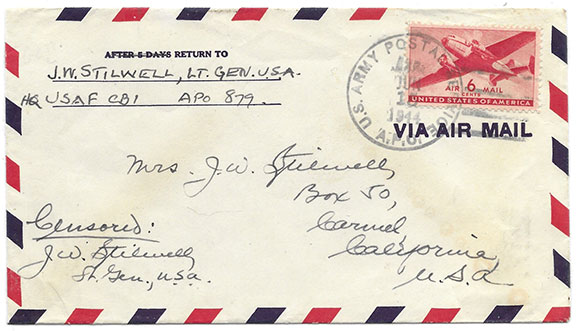 AFTER 5 DAYS RETURN TO
J.W. STILWELL, LT. GEN. U.S.A.
HQ USAF CBI APO 879
U.S. ARMY POSTAL SERVICE
A.P.O.
JAN
1944
AIR 6 MAIL
CENTS
UNITED STATES OF AMERICA
VIA AIR MAIL
Mrs. J.W. Stilwell,
Box 50,
Carmel,
California,
U.S.A
Censored:
J.W. Stilwell
Lt. Gen., U.S.A.